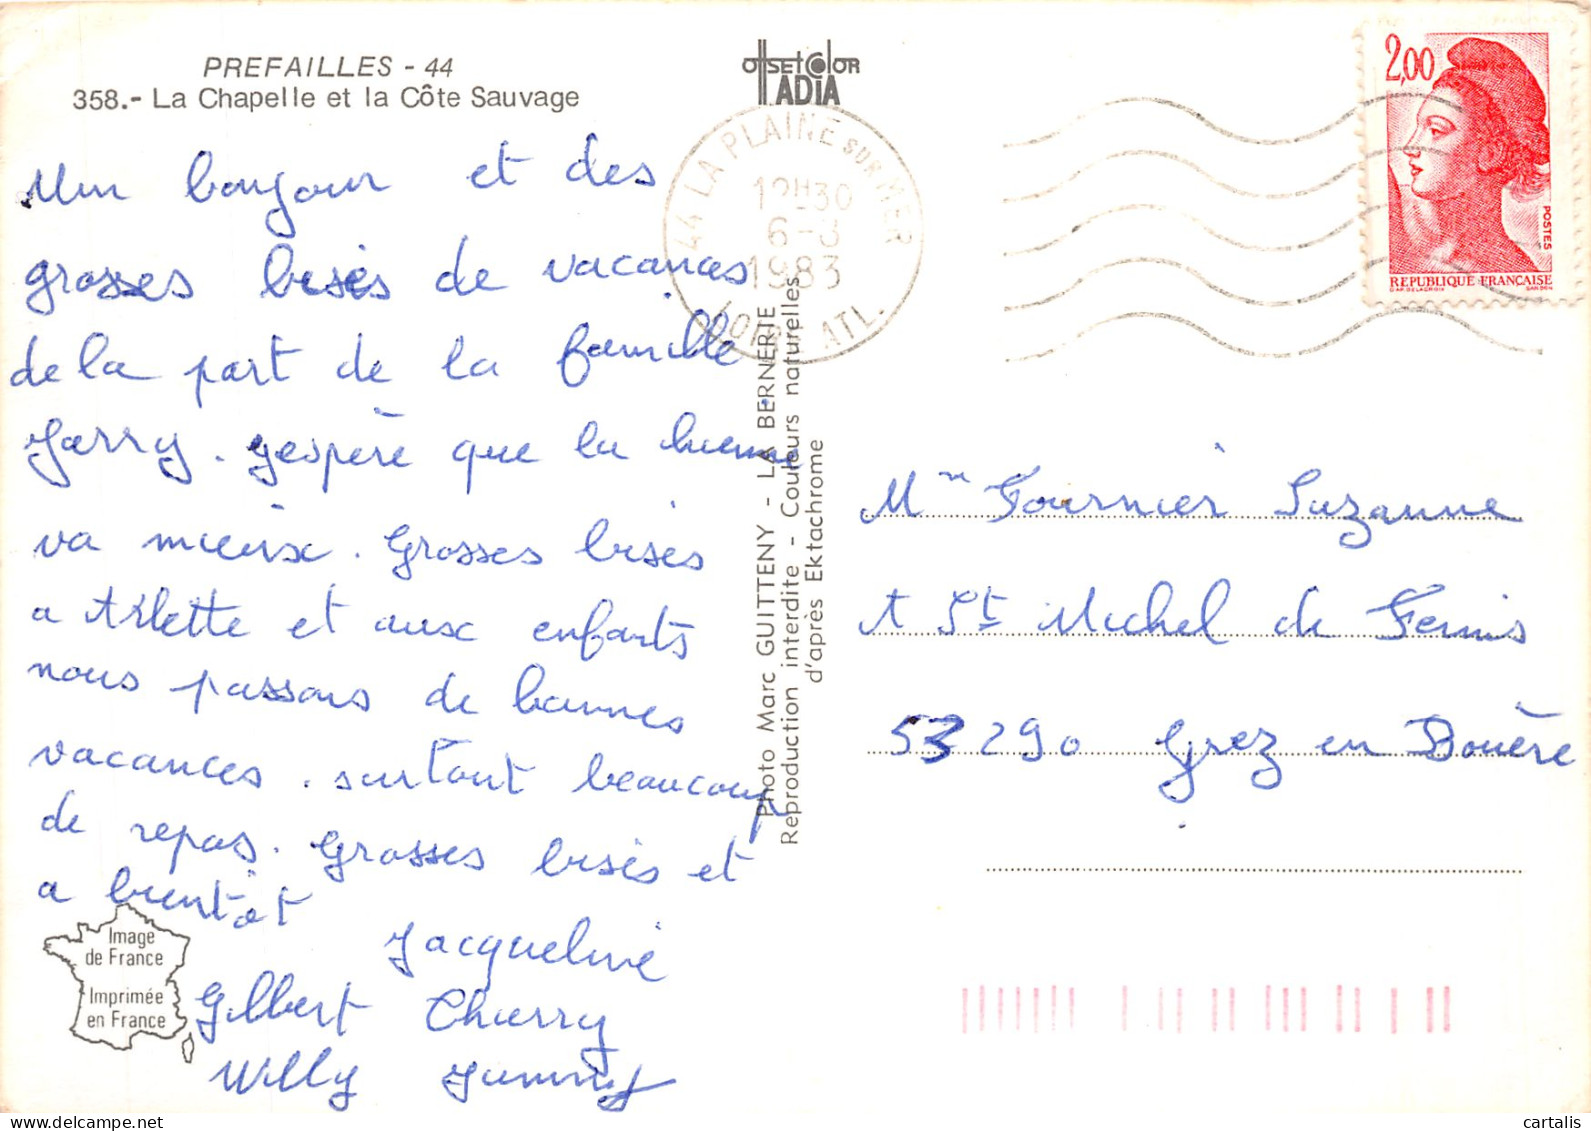 PREFAILLES - 44
358.- La Chapelle et la Côte Sauvage
Offset Color
ADIA
44 LA PLAINE SUR MER
12H30
6-
1983
LOIRE ATL.
2,00
POSTES
REPUBLIQUE FRANÇAISE
D'AP. DELACROIX GANDON
Un bonjour et des
grosses bises de vacances
de la part de la famille
Jarry. J'espère que la hienne
va mieux. Grosses bises
a Arlette et aux enfants
nous passons de bonnes
vacances. surtout beaucoup
de repas. Grosses bises et
a bientôt
Jacqueline
Gilbert Thierry
Willy Jummy
Image
de France
Imprimée
en France
Photo Marc GUITTENY - LA BERNERIE
Reproduction interdite - Couleurs naturelles
d'après Ektachrome
Mm Fournier Suzanne
A St Michel de Feins
53290 Grez en Bouère
cartalis
www.delcampe.net